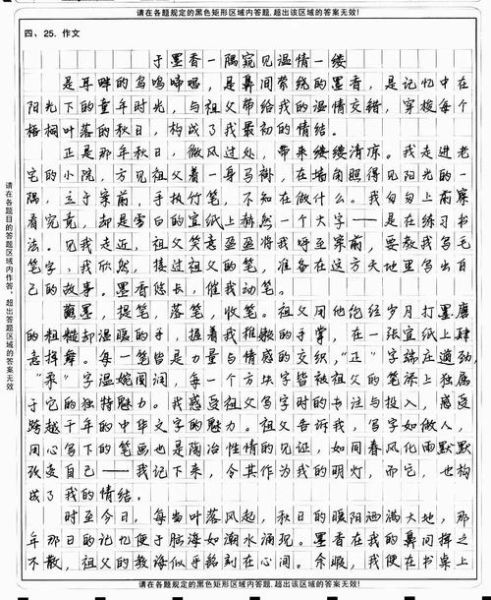 请在各题规定的黑色矩形区域内答题,超出该区域的答案无效!
四、25. 作文
于墨香一隅窥见温情一缕
是耳畔的鸟鸣啼唱,是鼻间萦绕的墨香,是记忆中在
阳光下的童年时光,与祖父带给我的温情交错,穿梭每个
梧桐叶落的秋日,构成了我最初的情结。
正是那年秋日,微风过处,带来缕缕清凉。我走进老
宅的小院,方见祖父着一身马褂,在墙角照得见阳光的一
隅,立于案前,手执竹笔,不知在做什么。我匆匆上前察
看究竟,却是雪白的宣纸上赫然一个大字——是在练习书
法。见我走近,祖父笑意盈盈将我呼至案前,要教我写毛
笔字,我欣然,接过祖父的笔,准备在这方天地里写出自
己的故事。墨香悠长,催我动笔。
蘸墨,提笔,落笔,收笔。祖父用他佗经岁月打磨
的粗糙却温暖的手,握着我稚嫩的手掌,在一张宣纸上肆
意挥舞。每一笔皆是力量与情感的交织,“正”字端庄遒劲
“柔”字温婉圆润,每一个方块字皆被祖父的笔添上独属
于它的独特魅力。我感受祖父写字时的专注与投入,感受
跨越千年的中华文字的魅力。祖父告诉我,写字如做人,
用心写下的笔画也是陶冶性情的见证,如同春风化雨默默
改变自己——我记下来,令其作为我的明灯,而它,也构
成了我的情结。
时至今日,每当叶落风起,秋日的暖阳洒满大地,那
年那日的记忆便于脑海如潮水涌现。墨香在我的鼻间挥之
不散,祖父的教诲似乎铭刻在心间。余暇,我便在书桌上
请在各题规定的黑色矩形区域内答题,超出该区域的答案无效!
请在各题目的答题区域内作答,超出答题区域的答案无效